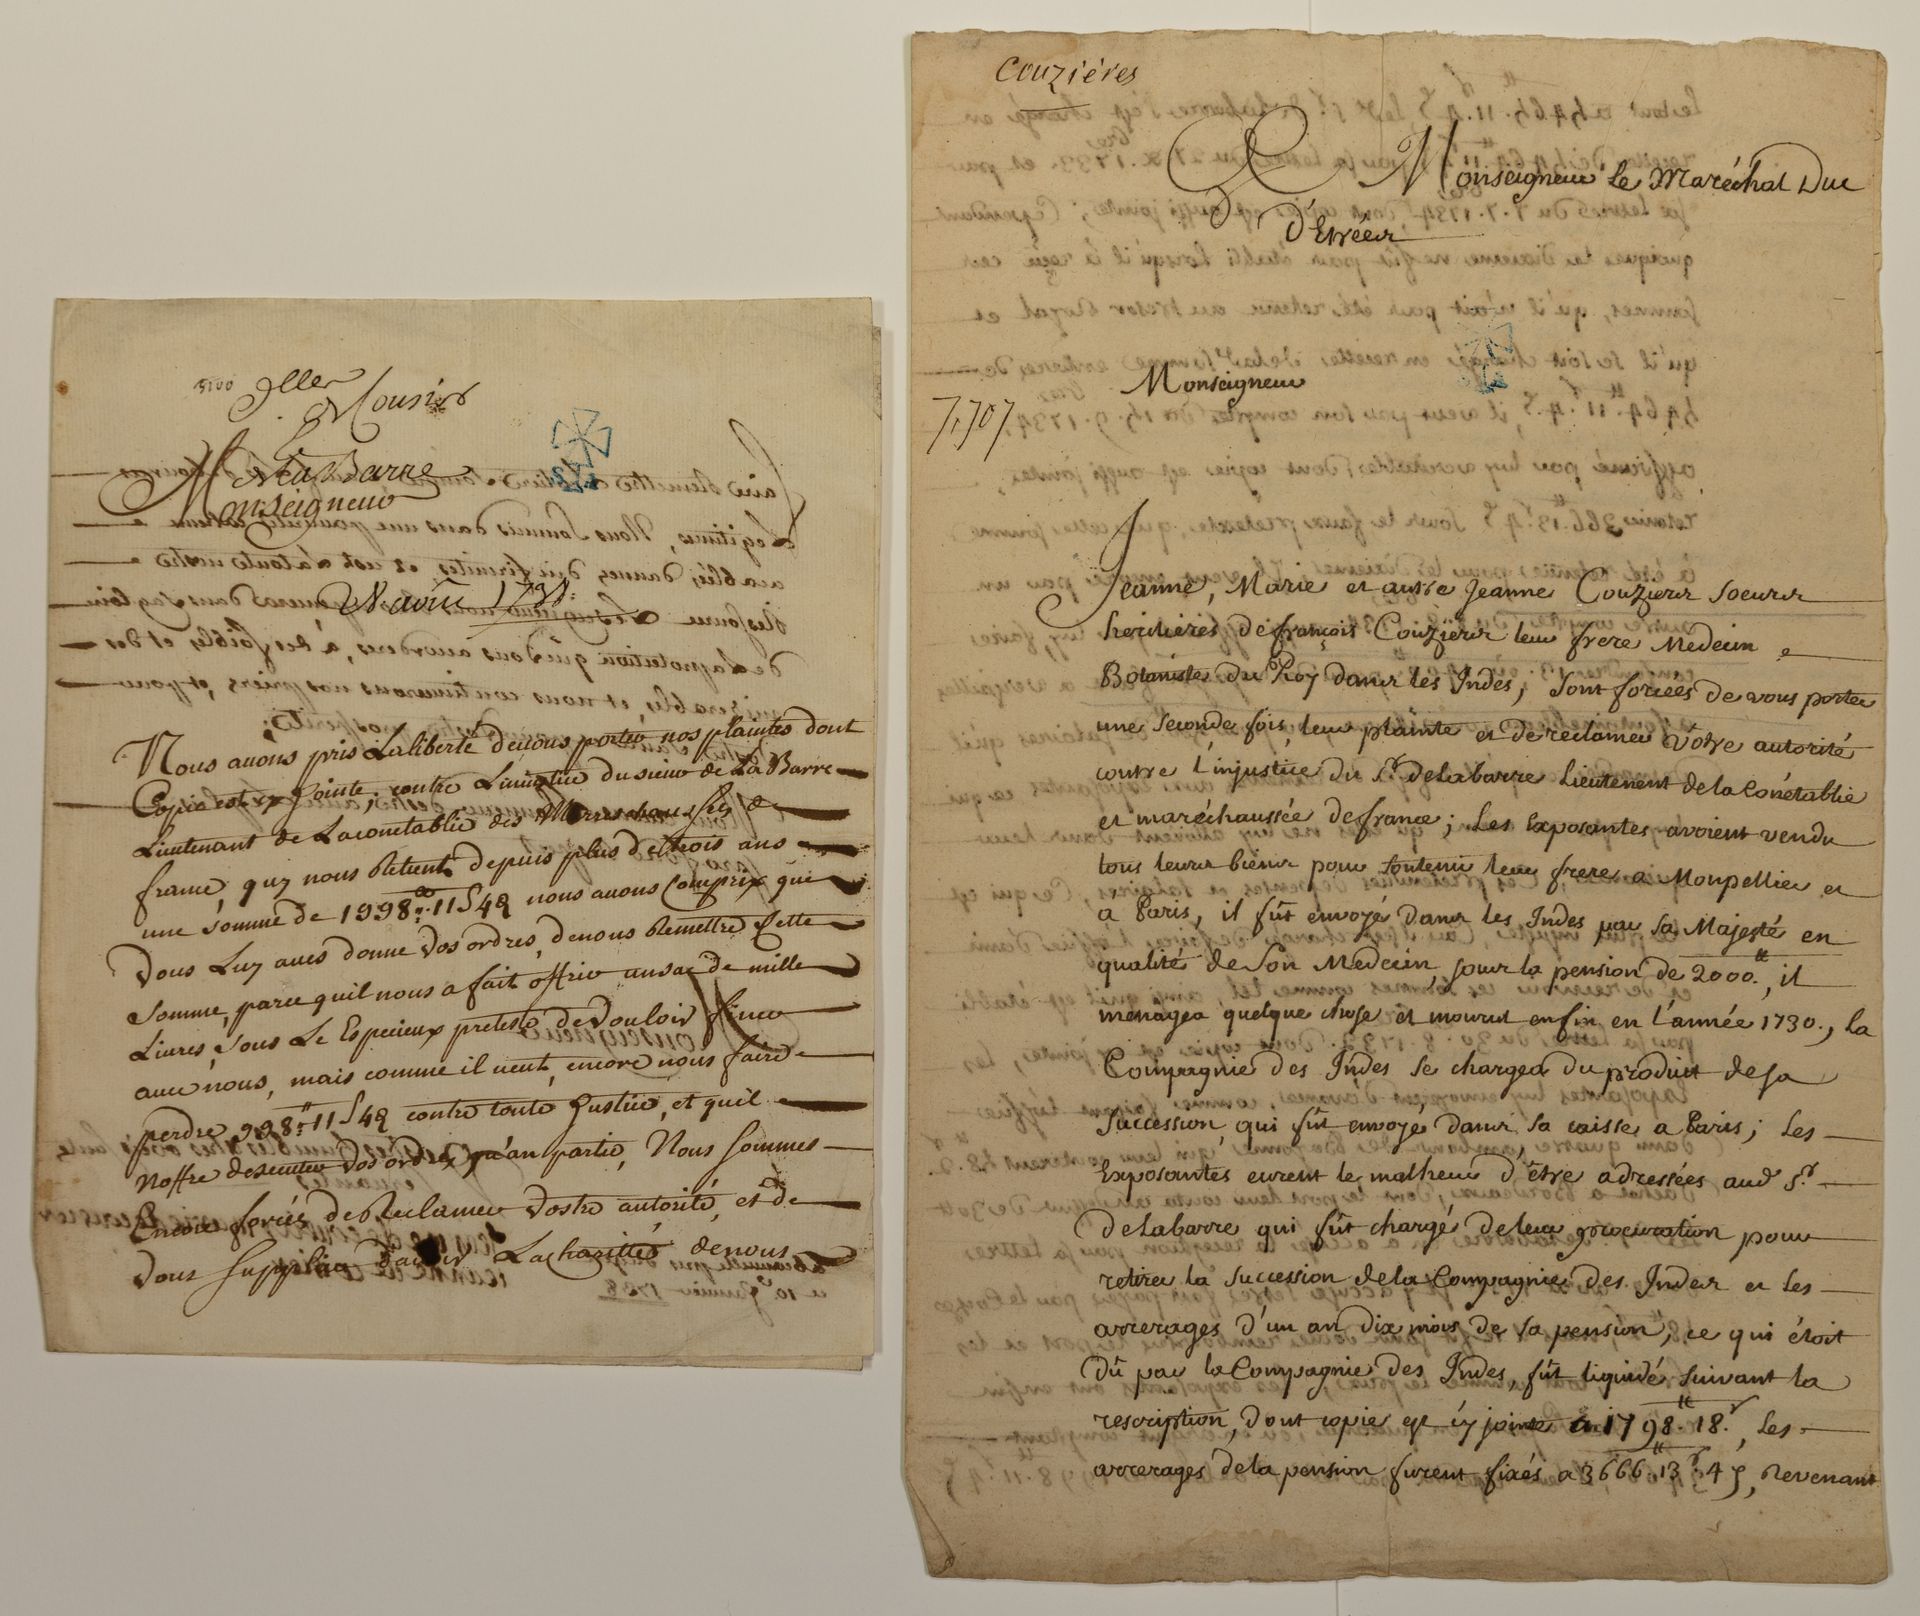 5100
Mlles
Cousiers
De La Barre
Monseigneur
Nous auons pris La liberté de uous porter nos plaintes dont
Copie est cy Jointe, contre Liniustice du sieur de La Barre
Lieutenant de La conetablie des Marechaussés de
france, quy nous Retient depuis plus de trois ans
une somme de 1998.# 11 S 4 d nous auons Compris que
Vous Luy aues donne Vos ordres, de nous Remettre Cette
Somme, parce quil nous a fait offrir un sac de mille
Liures, Sous Le Especieux preteste de Vouloir finir
auec nous, mais comme il ueut, encore nous faire
perdre 998.# 11 S 4 d contre toute Justice, et quil
N'offre d'executer Vos ordres, qu'an partie, Nous Sommes
Encore forcés de Reclamer Vostre autorité, et de
Vous Supplier d'auoir La charitté de nous
Couziéres
A Monseigneur Le Maréchal Duc
D'Etréés
Monseigneur
7,707
Jeanne, Marie et autre Jeanne Couziers Soeurs
heritieres de françois Couziers leur frere Medecin
Botaniste du Roy dans les Indes, sont forcées de vous porter
une seconde fois, leur plainte et de reclamer Votre autorité
contre l'injustice du Sr. Delabarre Lieutenent de la Conétablie
et maréchaussée de france; Les Exposantes avoient vendu
tous leurs biens pour soutenir leur frere a Monpellier et
a Paris, il fût envoyé dans les Indes par sa Majesté en
qualité de Son Medecin, sour la pension de 2000.#, il
menagea quelque chose et mourut enfin en l'année 1730., la
Compagnie des Indes se chargea du produit de sa
Succession, qui fût envoyé dans sa caisse a Paris; Les
Exposantes eurent le malheur d'être adressées aud. Sr.
Delabarre qui fût chargé de leur procuration pour
retirer la succession de la Compagnie des Indes et les
arrerages d'un an dix mois de sa pension, ce qui étoit
Dû par la Compagnie des Indes, fût liquidé suivant la
rescription, dont copie est cy jointe a 1798.# 18.s, Les
arrerages de la pension furent fixés a 3666.# 13.s 4 d, Revenant